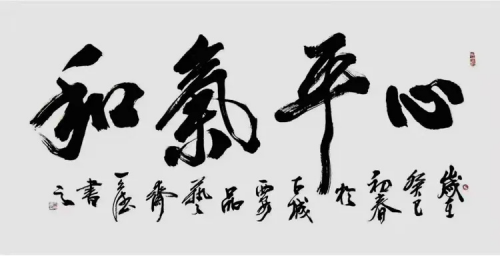 心平氣和
歲在癸巳初春於古城西安品藝齋 書之